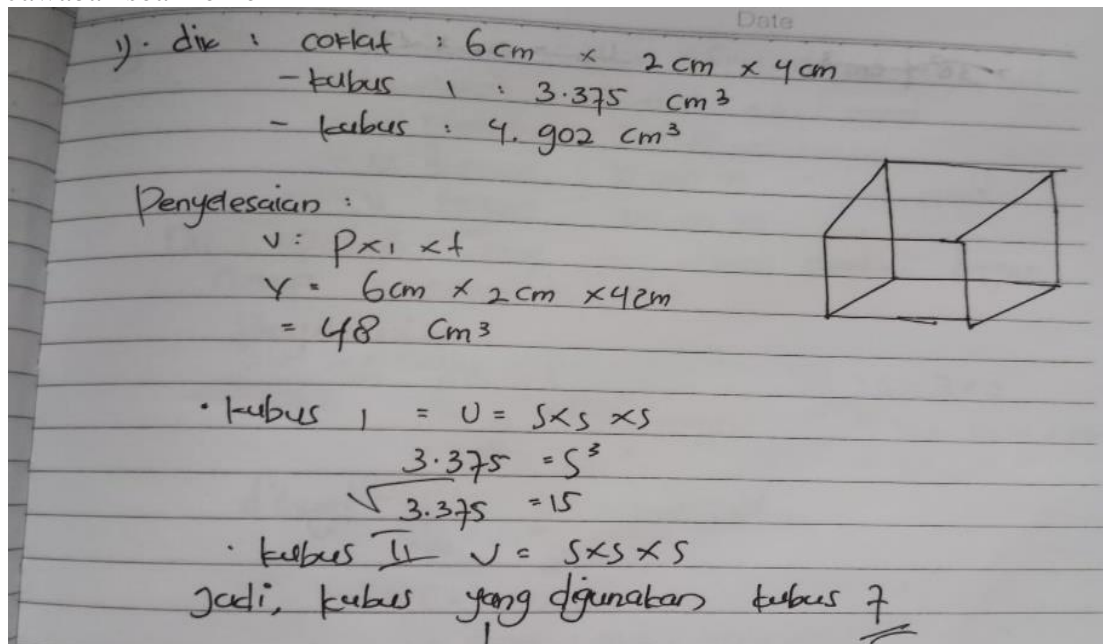 Date
1). dik : coklat : 6cm × 2cm × 4cm
- kubus 1 : 3.375 cm³
- kubus : 4.902 cm³
Penyelesaian :
V : P×l×t
V = 6cm × 2cm ×4cm
= 48 cm³
• kubus 1 = V = S×S×S
3.375 = S³
√3.375 = 15
• kubus II V = S×S×S
Jadi, kubus yang digunakan kubus 7